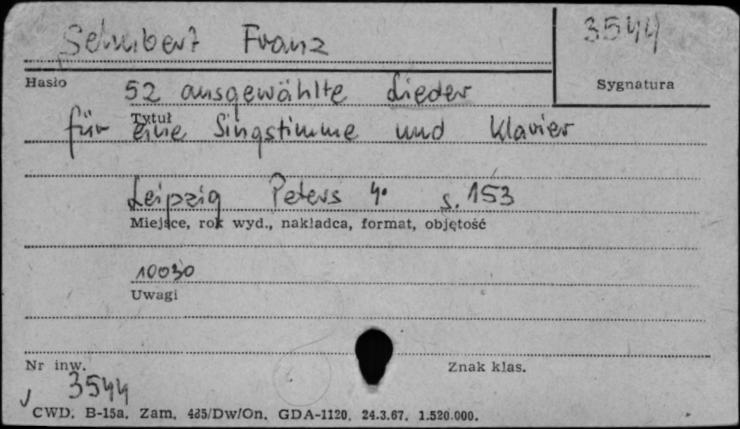 Schubert Franz
3544
Hasło
Sygnatura
52 ausgewählte Lieder
Tytuł
für eine Singstimme und Klavier
Leipzig Peters 4° s. 153
Miejsce, rok wyd., nakładca, format, objętość
10030
Uwagi
Nr inw.
Znak klas.
3544
CWD. B-15a. Zam. 485/Dw/On. GDA-1120. 24.3.67. 1.520.000.